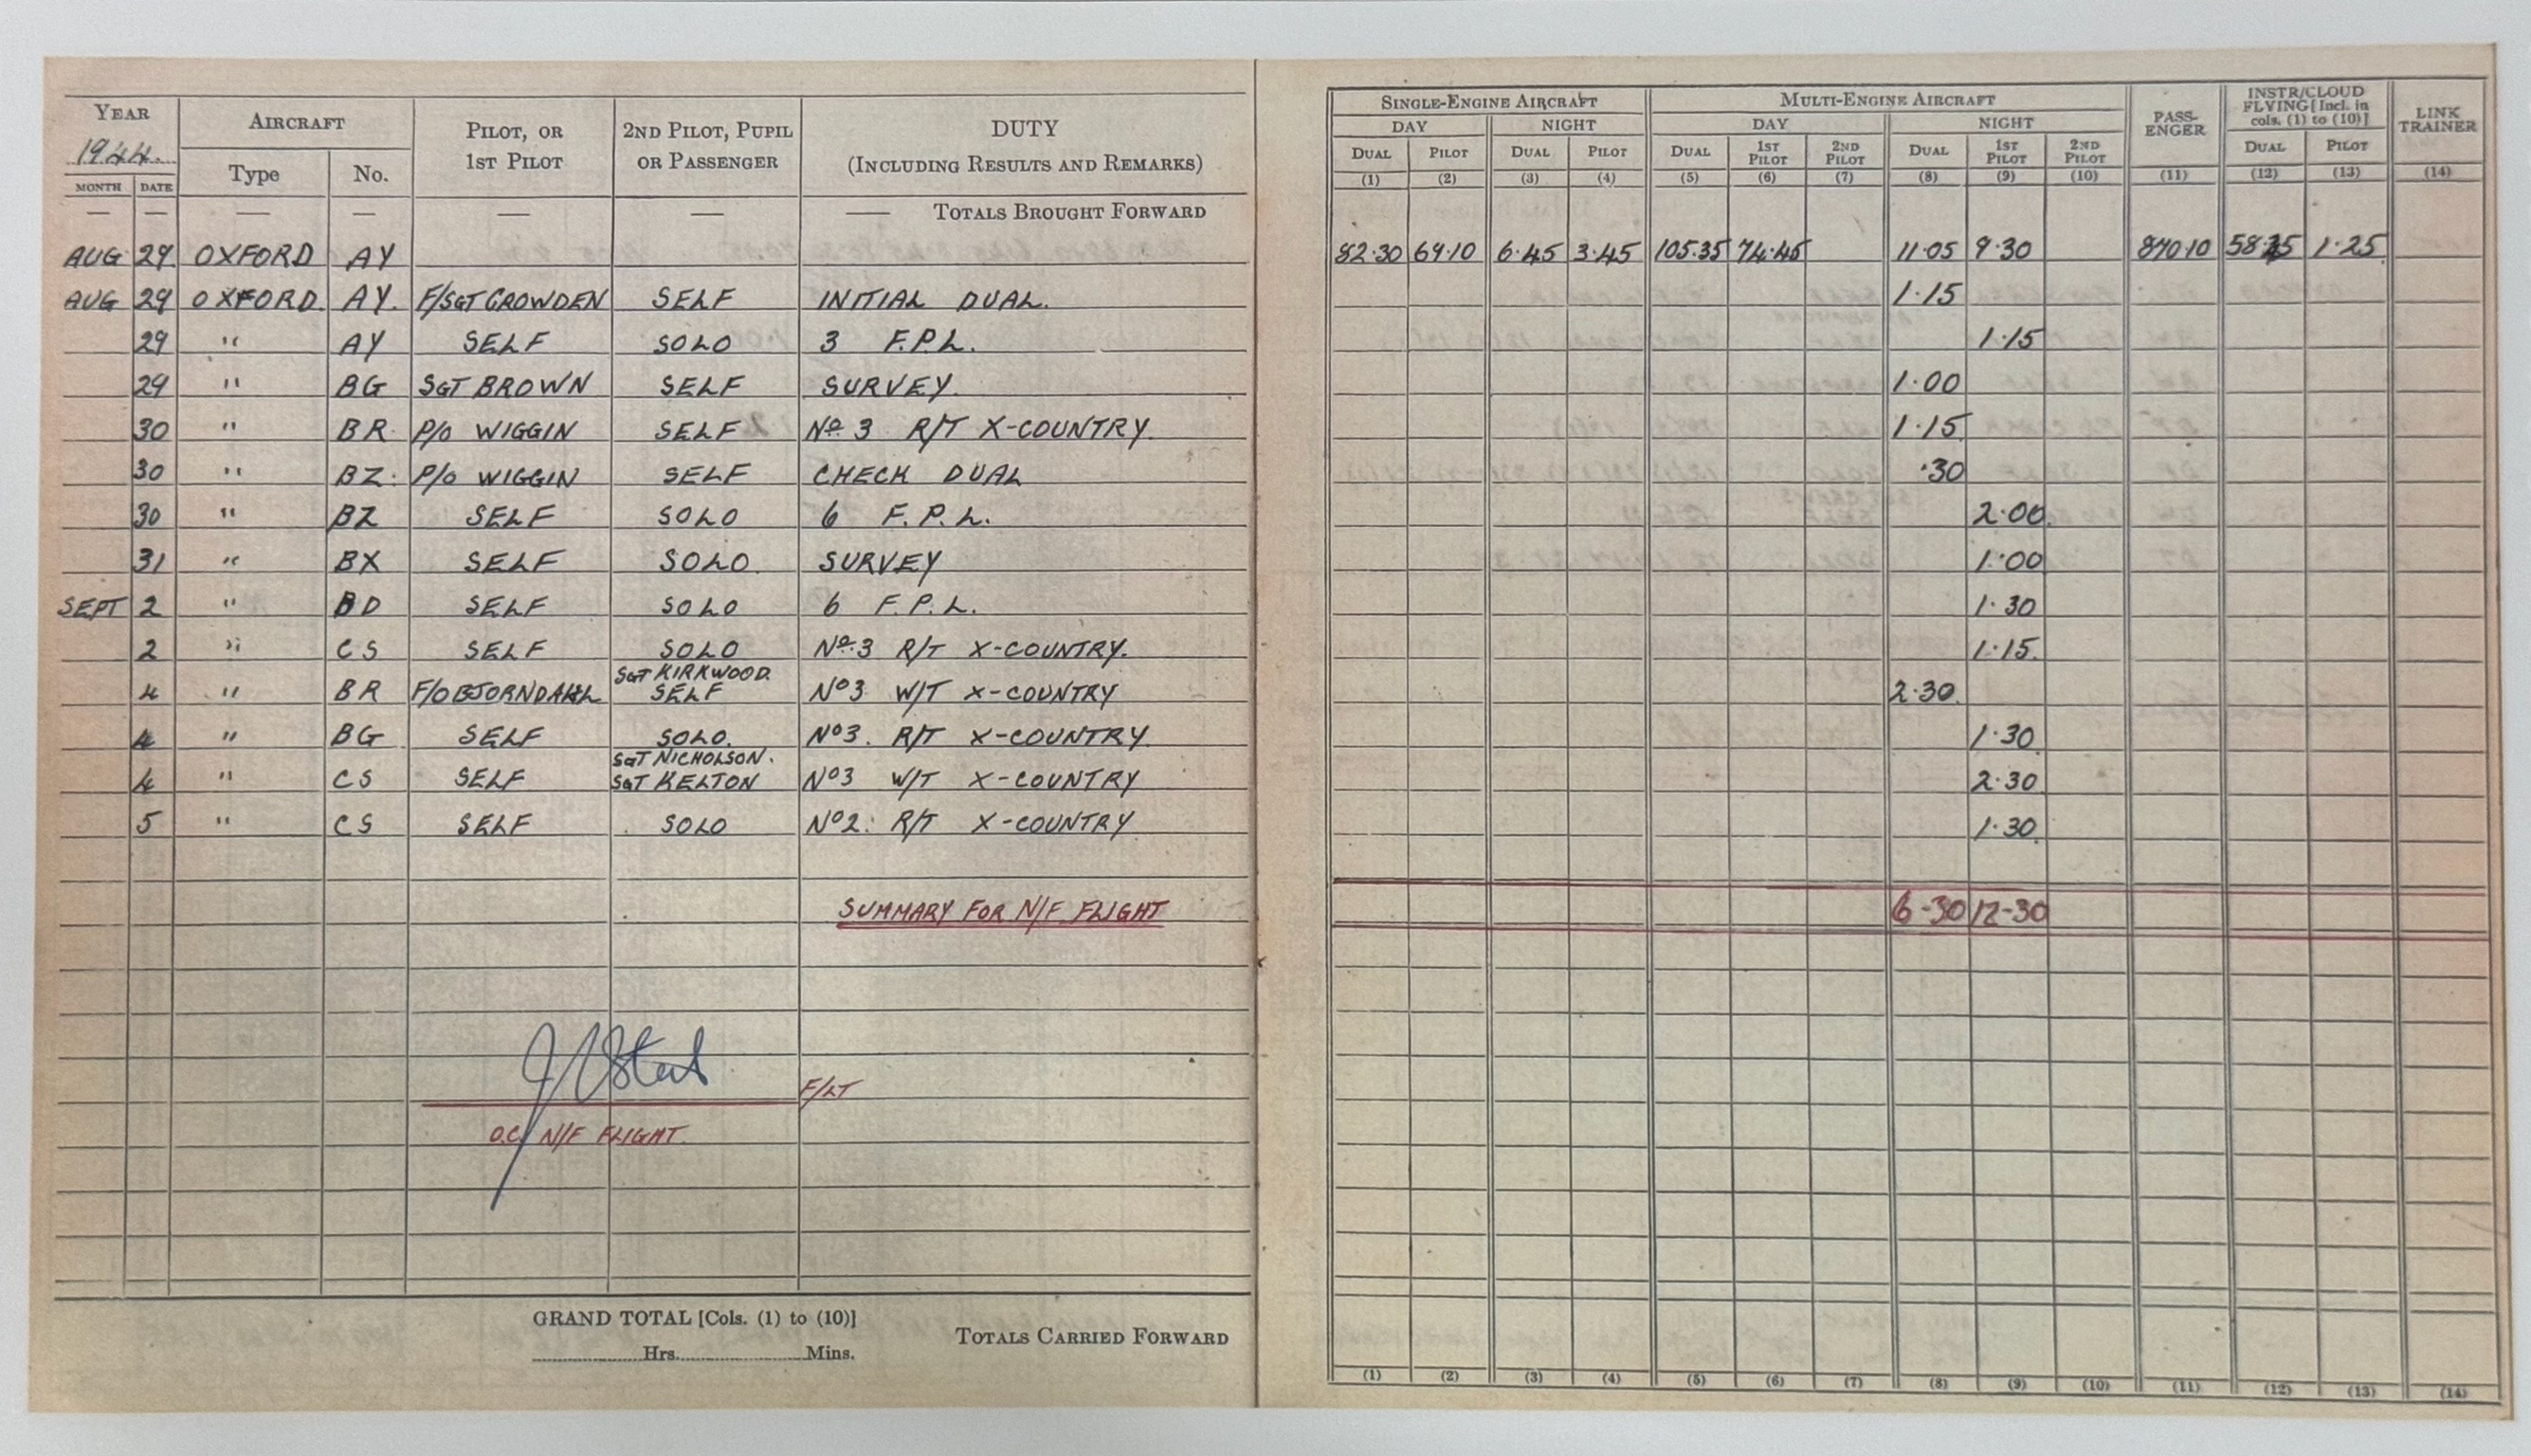 YEAR 1944. AIRCRAFT PILOT, OR 1ST PILOT 2ND PILOT, PUPIL OR PASSENGER DUTY (INCLUDING RESULTS AND REMARKS) SINGLE-ENGINE AIRCRAFT MULTI-ENGINE AIRCRAFT PASS-ENGER INSTR/CLOUD FLYING [Incl. in cols. (1) to (10)] LINK TRAINER
DAY NIGHT DAY NIGHT
MONTH DATE Type No. DUAL PILOT DUAL PILOT DUAL 1ST PILOT 2ND PILOT DUAL 1ST PILOT 2ND PILOT DUAL PILOT
(1) (2) (3) (4) (5) (6) (7) (8) (9) (10) (11) (12) (13) (14)
— — — — — — — TOTALS BROUGHT FORWARD
AUG 29 OXFORD AY 82·30 69·10 6·45 3·45 105·35 74·45 11·05 9·30 1·25
AUG 29 OXFORD AY. F/SGT CROWDEN SELF INITIAL DUAL. 1·15
29 " AY SELF SOLO 3 F.P.L. 1·15
29 " BG SGT BROWN SELF SURVEY. 1·00
30 " BR P/O WIGGIN SELF Nº 3 R/T X-COUNTRY. 1·15
30 " BZ. P/O WIGGIN SELF CHECK DUAL ·30
30 " BZ SELF SOLO 6 F.P.L. 2·00
31 " BX SELF SOLO. SURVEY 1·00
SEPT 2 " BD SELF SOLO 6 F.P.L. 1·30
2 " CS SELF SOLO Nº 3 R/T X-COUNTRY. 1·15
SGT KIRKWOOD.
4 " BR F/O BJORNDAHL SELF Nº3 W/T X-COUNTRY 2·30
4 " BG SELF SOLO. Nº3. R/T X-COUNTRY. 1·30
SGT NICHOLSON.
4 " CS SELF SGT KELTON Nº3 W/T X-COUNTRY 2·30
5 " CS SELF SOLO Nº2. R/T X-COUNTRY 1·30
SUMMARY FOR N/F FLIGHT 6-30 12-30
F/LT
O.C. N/F FLIGHT.
GRAND TOTAL [Cols. (1) to (10)]
Hrs. Mins.
TOTALS CARRIED FORWARD
(1) (2) (3) (4) (5) (6) (7) (8) (9) (10) (11) (12) (13) (14)